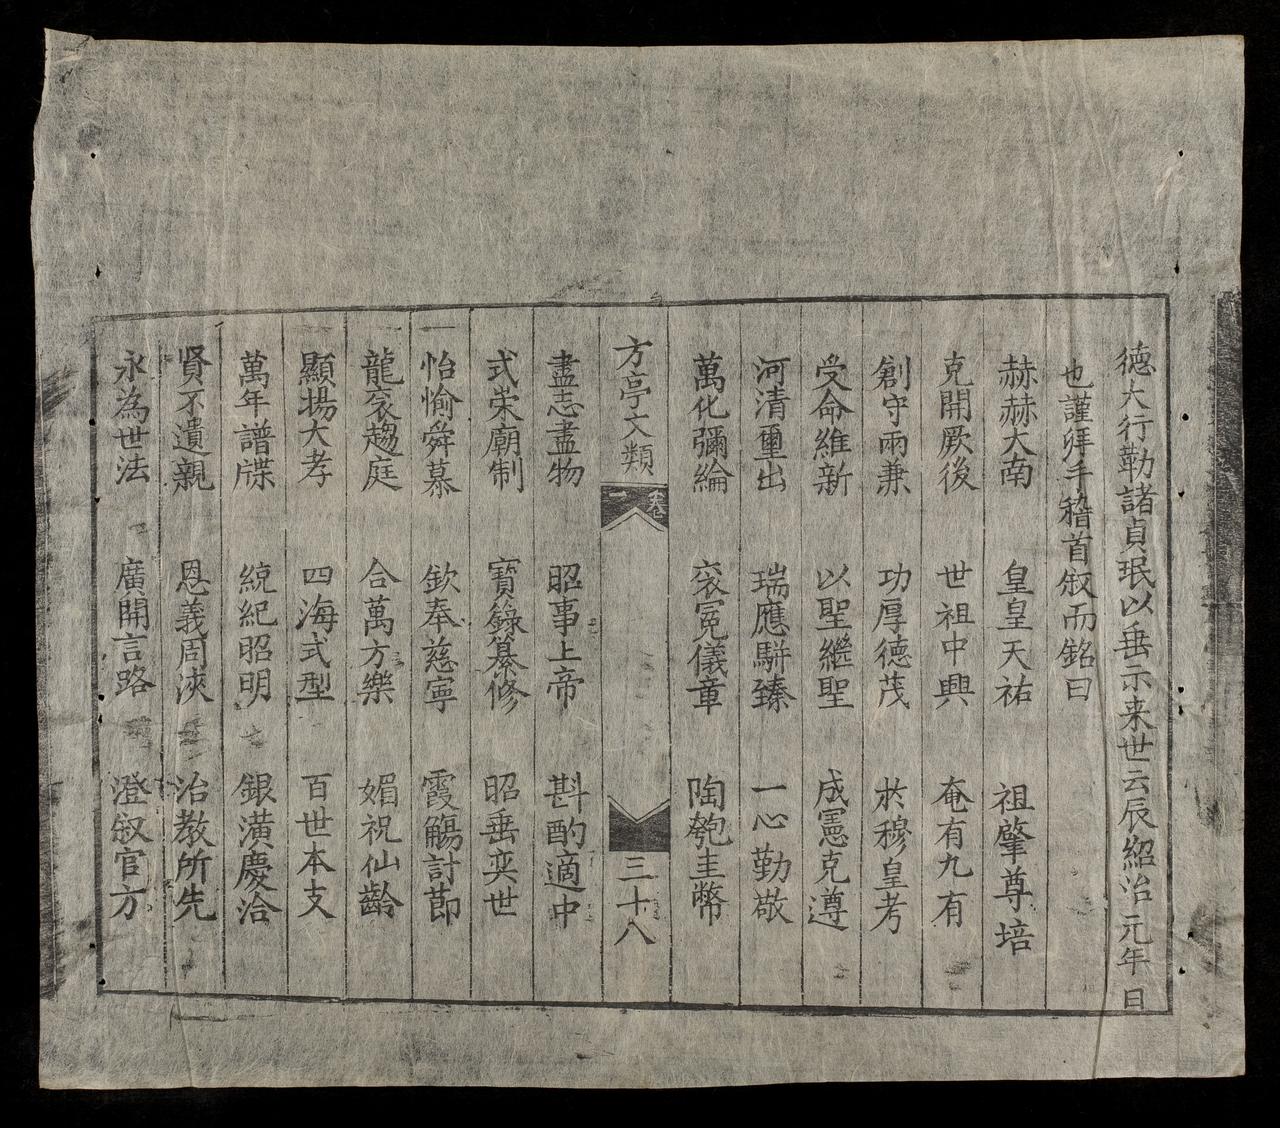 德大行勒諸貞珉以垂示来世云辰紹治元年日
也謹拜手稽首敘而銘曰
赫赫大南 皇皇天祐 祖肇尊培
克開厥後 世祖中興 奄有九有
創守兩兼 功厚德茂 於穆皇考
受命維新 以聖繼聖 成憲克遵
河清璽出 瑞應駢臻 一心勤敬
萬化彌綸 衮冕儀章 陶匏圭幣
方亭文類 卷一 三十八
盡志盡物 昭事上帝 斟酌適中
式崇廟制 寶錄纂修 昭垂奕世
怡愉舜慕 欽奉慈寧 霞觴討節
龍衮趨庭 合萬方樂 媚祝仙齡
顯揚大孝 四海式型 百世本支
萬年譜牒 統紀昭明 銀潢慶洽
賢不遺親 恩義周浹 治教所先
永為世法 廣開言路 澄敘官方